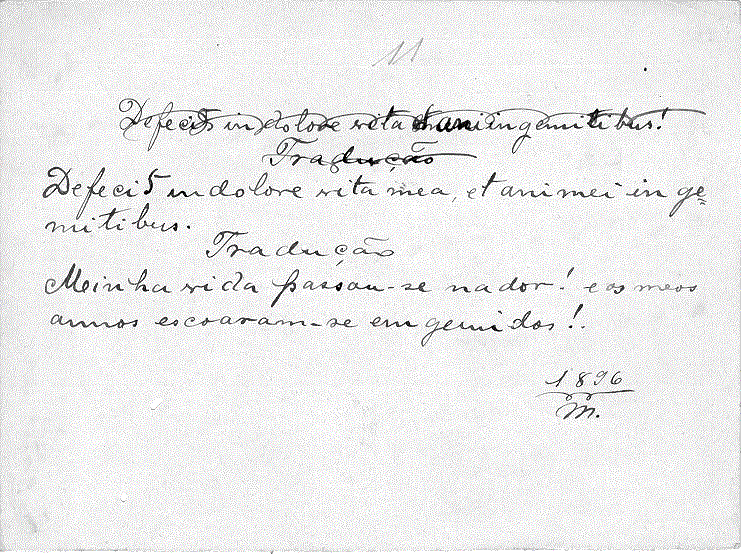 11
Defeci5 in dolore vita et ani in gemitibus!
Tradução
Defeci5 in dolore vita mea, et animei in ge=
mitibus.
Tradução
Meinha vida passou-se nador! e os meos
annos escoaram-se em gemidos!.
1896
M.